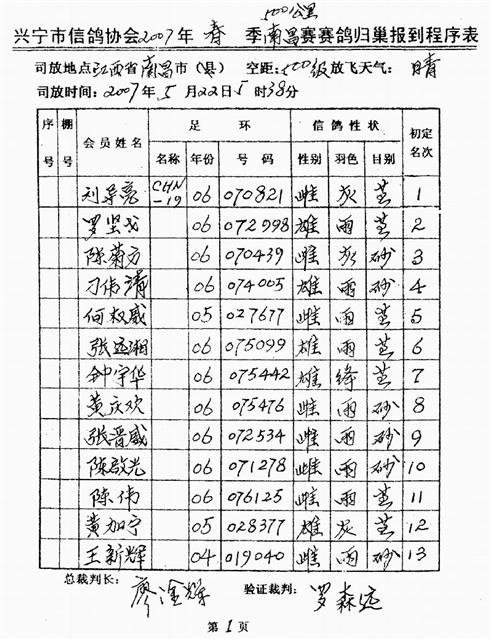 500公里
兴宁市信鸽协会2007年 春 季南昌赛赛鸽归巢报到程序表
司放地点江西省南昌市(县) 空距:500级放飞天气: 晴
司放时间:2007年5月22日5时38分
序号 棚号 会员姓名 足环 信鸽性状 初定名次
名称 年份 号码 性别 羽色 目别
刘导亮 CHN-19 06 070821 雌 灰 芸 1
罗坚戈 06 072998 雄 雨 芸 2
陈菊方 06 070439 雌 灰 砂 3
刁伟清 06 074005 雄 雨 砂 4
何权威 05 027677 雌 雨 芸 5
张远湘 06 075099 雄 雨 芸 6
钟宇华 06 075442 雄 绛 芸 7
黄庆欢 06 075476 雌 雨 砂 8
张晋威 06 072534 雌 雨 砂 9
陈啟光 06 071278 雌 雨 砂 10
陈伟 06 076125 雌 雨 芸 11
黄加宁 05 028377 雄 灰 芸 12
王新辉 04 019040 雌 雨 砂 13
总裁判长: 廖淦辉 验证裁判: 罗森远
第1页